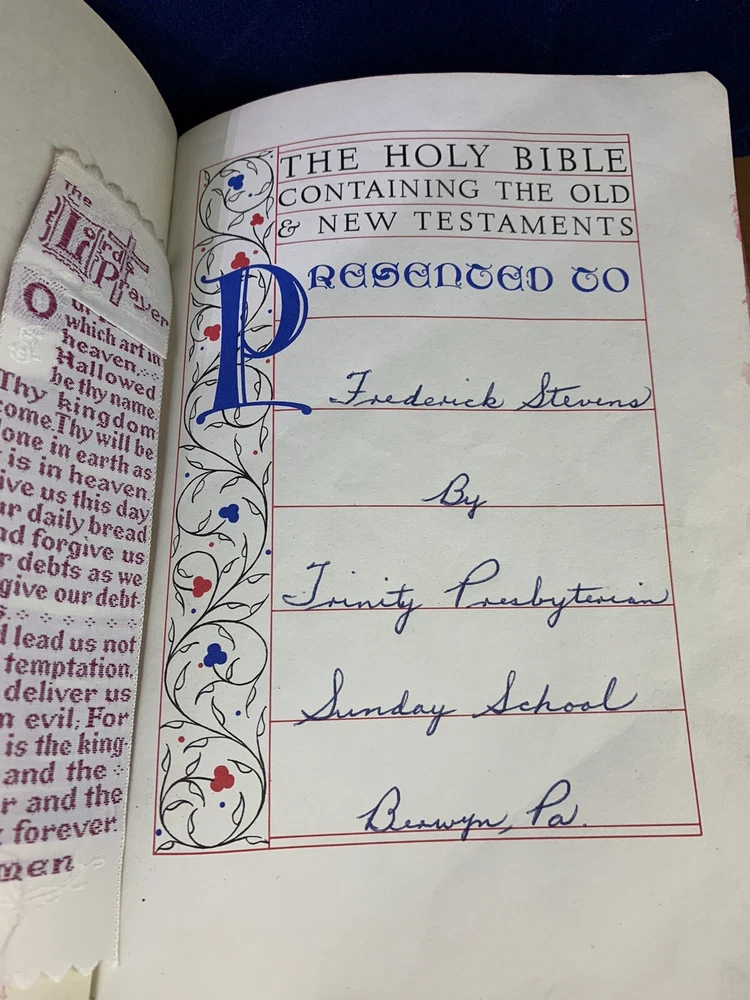 The
Lord's
Prayer
Our
which art in
heaven.
Hallowed
be thy name
Thy kingdom
come. Thy will be
done in earth as
is in heaven.
us this day
daily bread
forgive us
debts as we
give our debt-
lead us not
temptation,
deliver us
evil; For
is the king-
and the
and the
forever.
THE HOLY BIBLE
CONTAINING THE OLD
& NEW TESTAMENTS
PRESENTED TO
Frederick Stevens
By
Trinity Presbyterian
Sunday School
Berwyn, Pa.